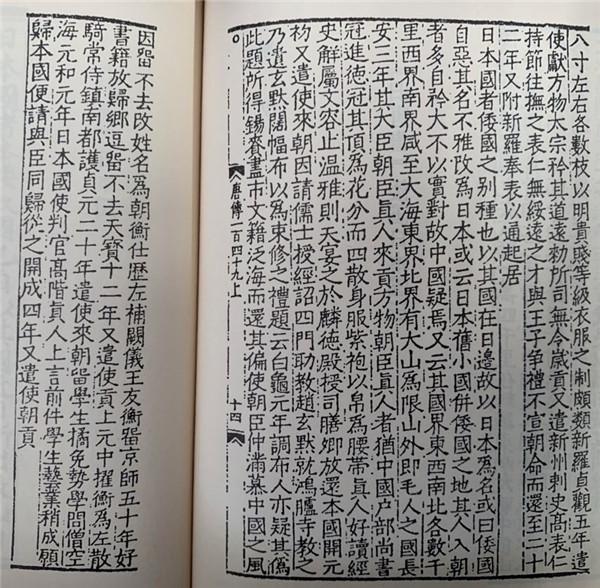 八寸左右各數枝以明貴賤等級衣服之制頗類新羅貞觀五年遣
使獻方物太宗矜其道遠勑所司無令歲貢又遣新州刺史髙表仁
持節往撫之表仁無綏遠之才與王子爭禮不宣朝命而還至二十
二年又附新羅奉表以通起居
日本國者倭國之别種也以其國在日邊故以日本爲名或曰倭國
自惡其名不雅改爲日本或云日本舊小國併倭國之地其人入朝
者多自矜大不以實對故中國疑焉又云其國界東西南北各數千
里西界南界咸至大海東界北界有大山爲限山外即毛人之國長
安三年其大臣朝臣眞人來貢方物朝臣眞人者猶中國户部尚書
冠進德冠其頂爲花分而四散身服紫袍以帛爲腰帶眞人好讀經
史解屬文容止温雅則天宴之於麟德殿授司膳卿放還本國開元
初又遣使來朝因請儒士授經詔四門助教趙玄默就鴻臚寺教之
乃遺玄默闊幅布以爲束修之禮題云白龜元年調布人亦疑其偽
此題所得錫賚盡市文籍泛海而還其偏使朝臣仲滿慕中國之風
唐傳一百四十九上
十四
因留不去改姓名爲朝衡仕歷左補闕儀王友衡留京師五十年好
書籍放歸鄉逗留不去天寶十二年又遣使貢上元中擢衡爲左散
騎常侍鎮南都護貞元二十年遣使來朝留學生橘免勢學問僧空
海元和元年日本國使判官髙階真人上言前件學生藝業稍成願
歸本國便請與臣同歸從之開成四年又遣使朝貢